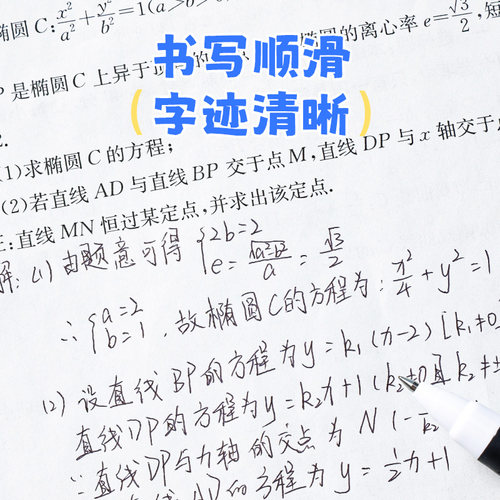 椭圆 C: x²/a² + y²/b² = 1(a>b>
书写顺滑
圆的离心率 e = √3/2, 短
P 是椭圆 C 上异于
(字迹清晰)
(1)求椭圆 C 的方程;
(2)若直线 AD 与直线 BP 交于点 M, 直线 DP 与 x 轴交于点
:直线 MN 恒过某定点,并求出该定点.
解: (1) 由题意可得 { 2b=2 e = √a²-b²/a = √3/2
∴ { a=2 b=1 , 故椭圆C的方程为: x²/4 + y² = 1
(2) 设直线BP的方程为 y = k₁(x-2) [k₁≠0
直线DP的方程为 y = k₂x+1 (k₂≠0且 k₂≠±
∵直线DP与x轴的交点为 N(-
直线AD的方程为 y = ½x+1